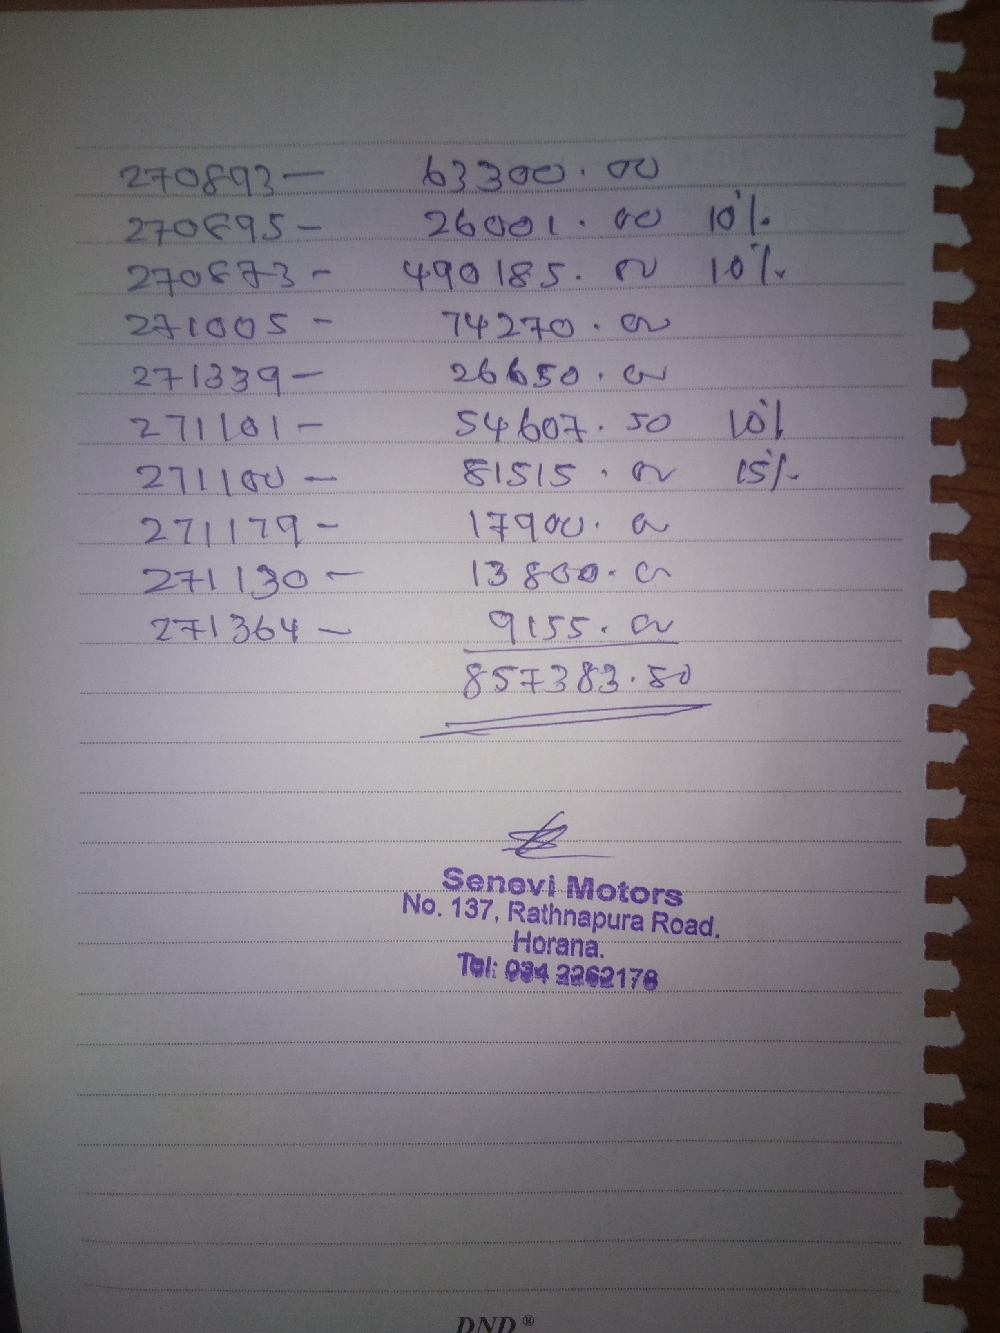 270893 - 63300.00
270895 - 26001.00 10%
270873 - 490185.00 10%
271005 - 74270.00
271339 - 26650.00
271101 - 54607.50 10%
271100 - 81515.00 15%
271179 - 17900.00
271130 - 13800.00
271364 - 9155.00
857383.50
Senevi Motors
No. 137, Rathnapura Road.
Horana.
Tel: 034 2262178
DND®